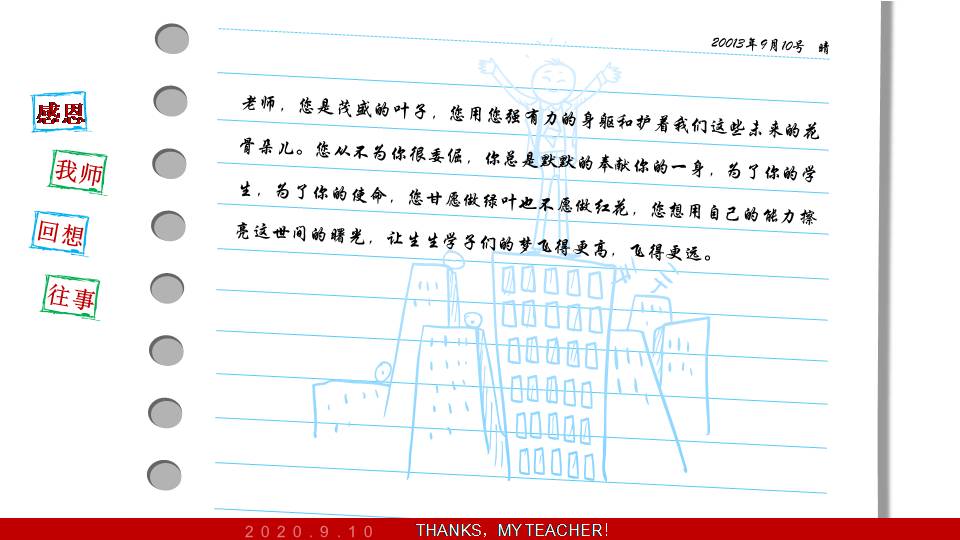 20013年9月10号 晴
感恩
我师
回想
往事
老师，您是茂盛的叶子，您用您强有力的身躯和护着我们这些未来的花
骨朵儿。您从不为你很委倔，你总是默默的奉献你的一身，为了你的学
生，为了你的使命，您甘愿做绿叶也不愿做红花，您想用自己的能力擦
亮这世间的曙光，让生生学子们的梦飞得更高，飞得更远。
2020.9.10
THANKS, MY TEACHER!